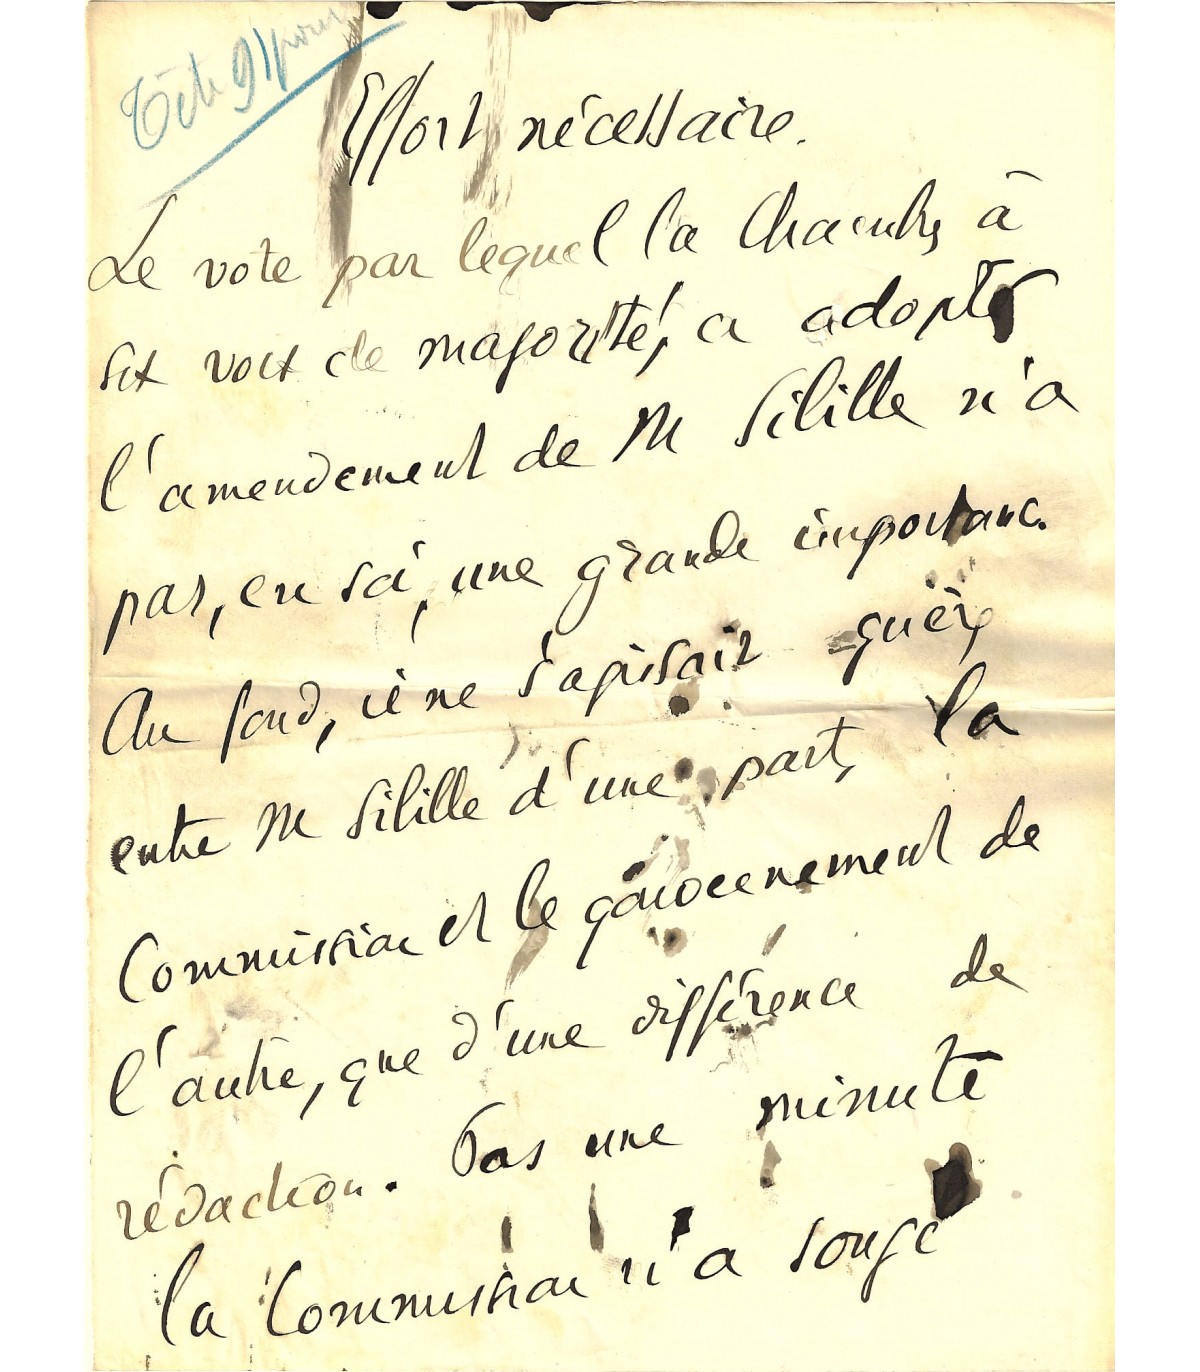 Tête 9 1 pour
Effort nécessaire.
Le vote par lequel la Chambre, à
six voix de majorité, a adopté
l'amendement de M Sibille n'a
pas, en soi, une grande importance.
Au fond, il ne s'agissait guère
entre M Sibille d'une part, la
Commission et le gouvernement de
l'autre, que d'une différence de
rédaction. Pas une minute
la Commission n'a songé